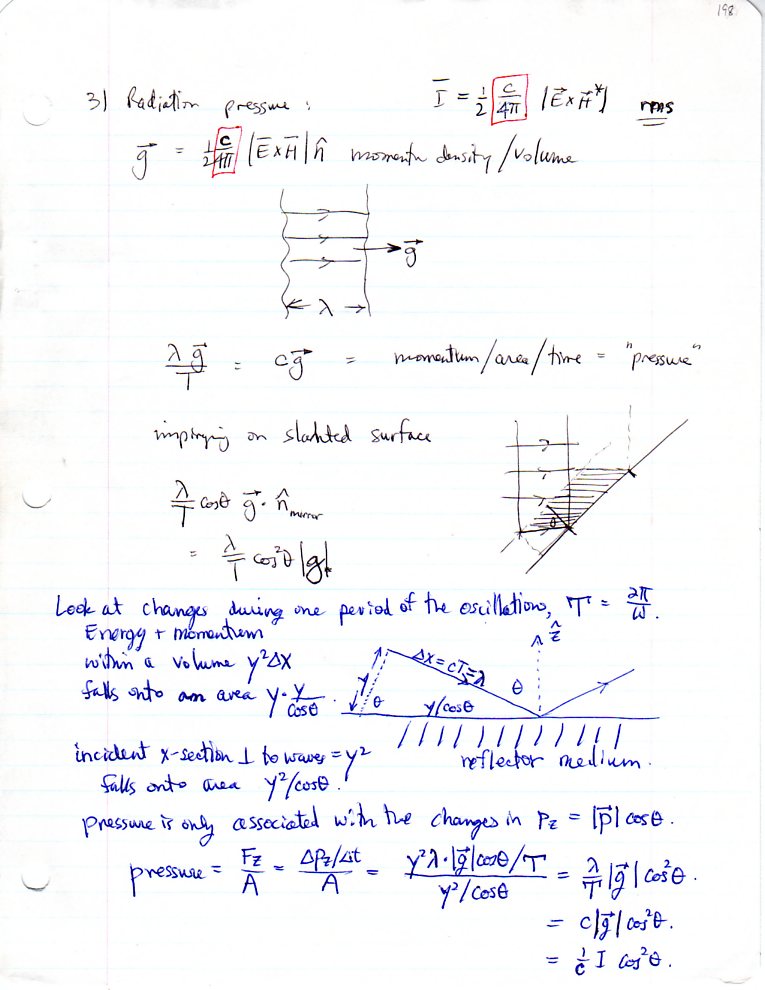 198
3) Radiation pressure: Ī = 1/2 c/4π |E⃗ x H⃗*| rms
g⃗ = 1/2 c/4π |E̅ x H̅| n̂ momentum density/volume
g⃗
λ
λg⃗/T = cg⃗ = momentum/area/time = "pressure"
impinging on slanted surface
θ
λ/T cosθ g⃗ · n̂ mirror
= λ/T cos²θ |g|
Look at changes during one period of the oscillations, T = 2π/ω.
Energy + momentum
within a volume y²Δx
falls onto an area y·y/cosθ.
ẑ
Δx = cT = λ
y
θ
y/cosθ
θ
incident x-section ⊥ to waves = y²
falls onto area y²/cosθ.
reflector medium.
pressure is only associated with the changes in Pz = |p⃗| cosθ.
pressure = Fz/A = ΔPz/Δt / A = y²λ·|g⃗|cosθ/T / y²/cosθ = λ/T |g⃗| cos²θ.
= c|g⃗| cos²θ.
= 1/c I cos²θ.